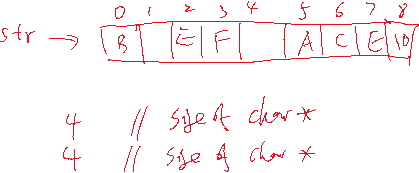 0 1 2 3 4 5 6 7 8
str → B E F A C E \0
4 // size of char *
4 // size of char *